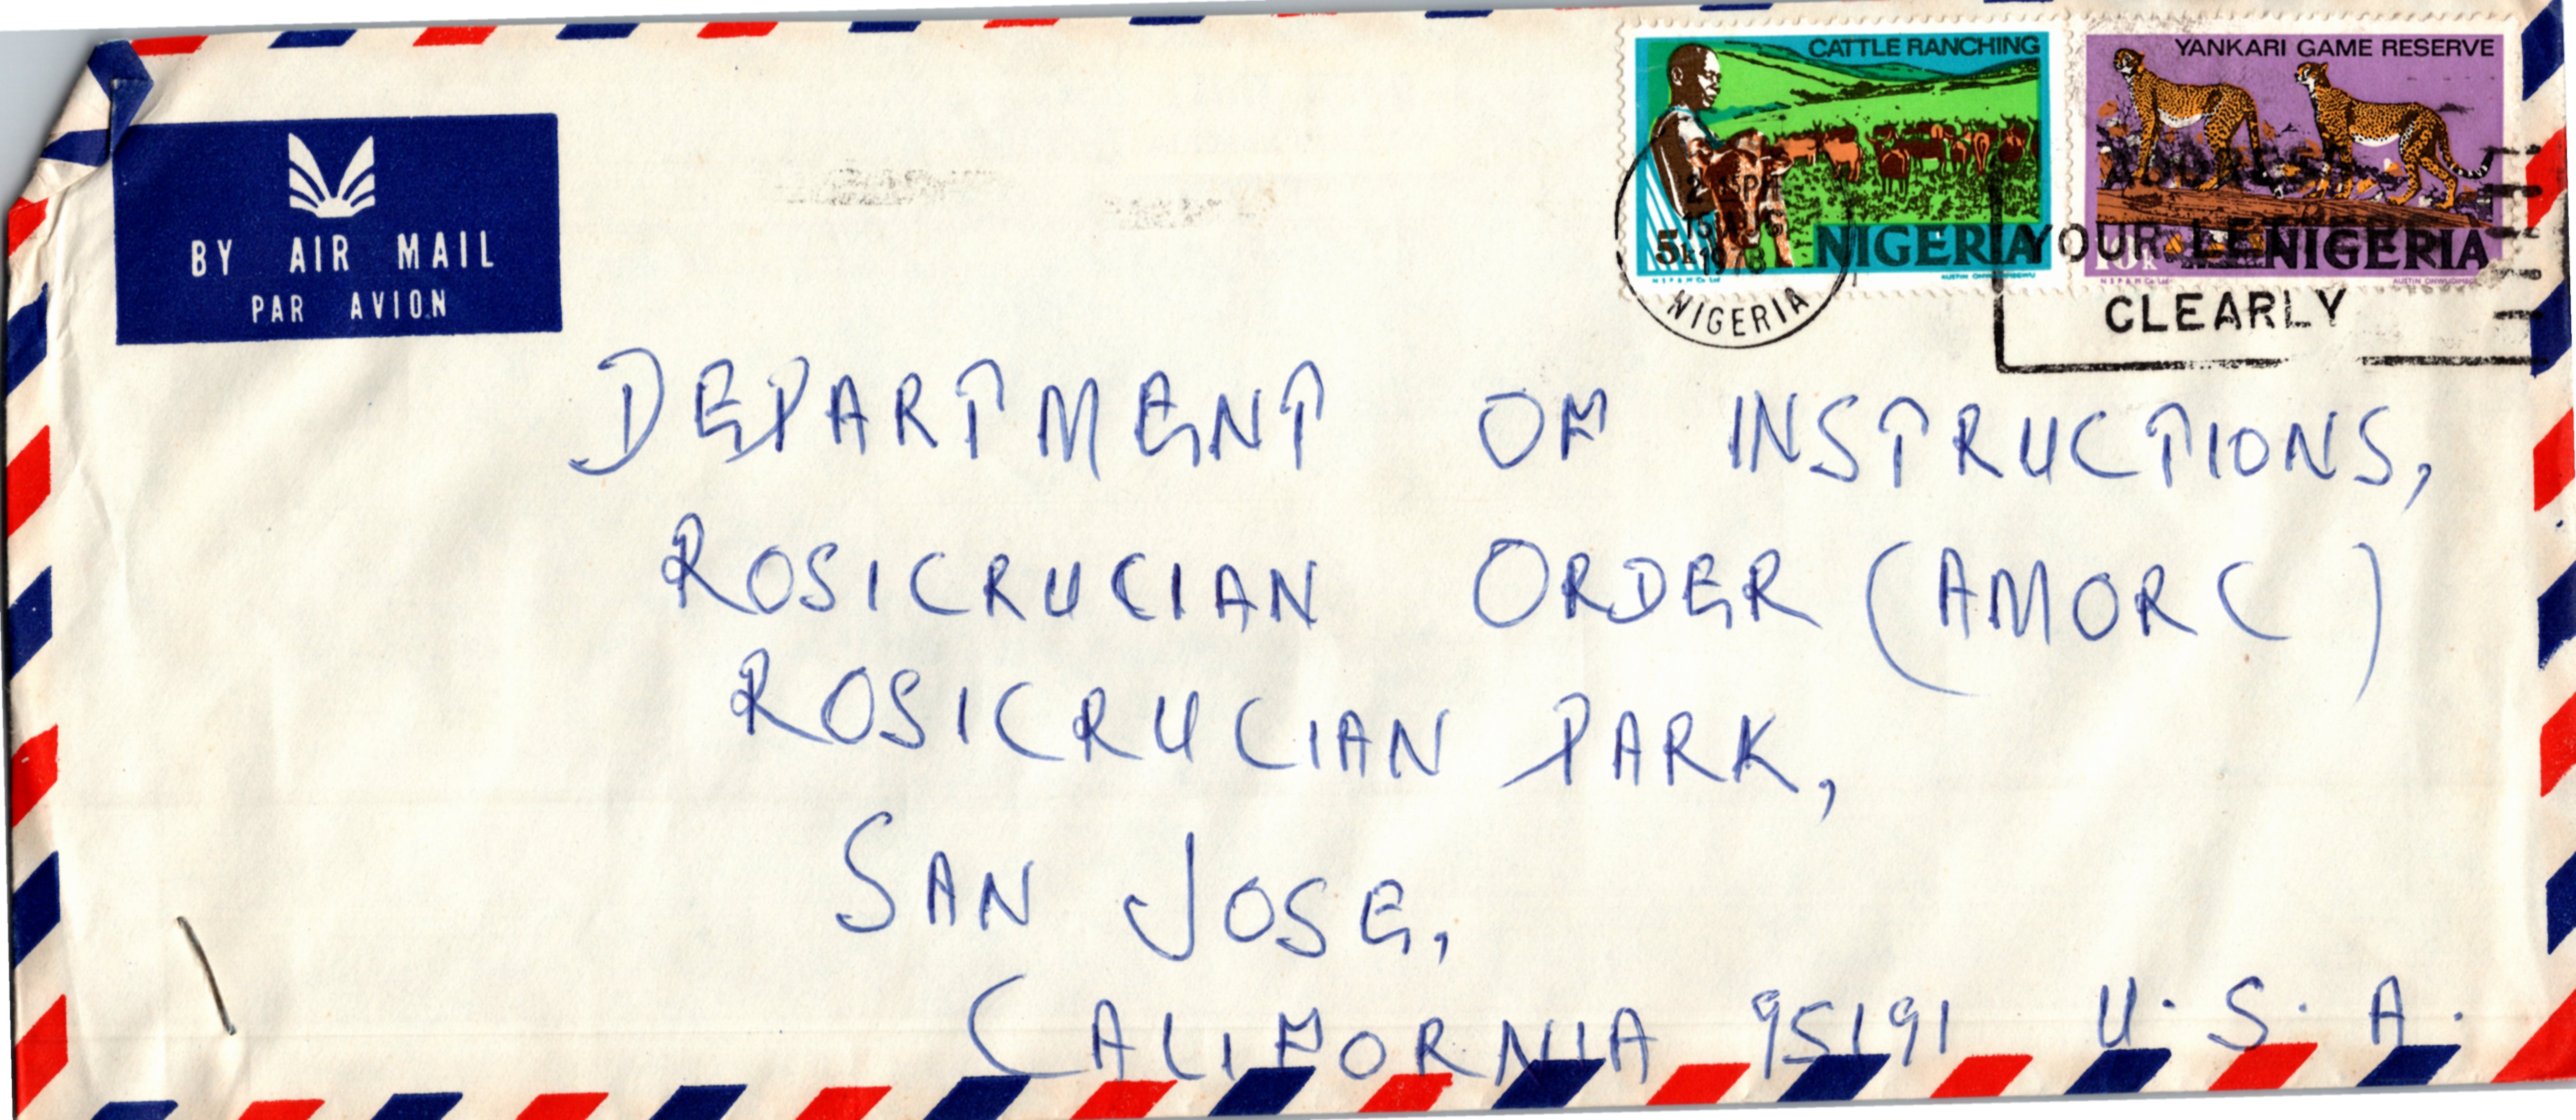 CATTLE RANCHING
5k NIGERIA
YANKARI GAME RESERVE
10k NIGERIA
AUSTIN ONWUDIMEGWU
N S P & M Co Ltd
1978
NIGERIA
ADDRESS
YOUR
CLEARLY
BY AIR MAIL
PAR AVION
DEPARTMENT OF INSTRUCTIONS,
ROSICRUCIAN ORDER (AMORC)
ROSICRUCIAN PARK,
SAN JOSE,
CALIFORNIA 95191 U.S.A.